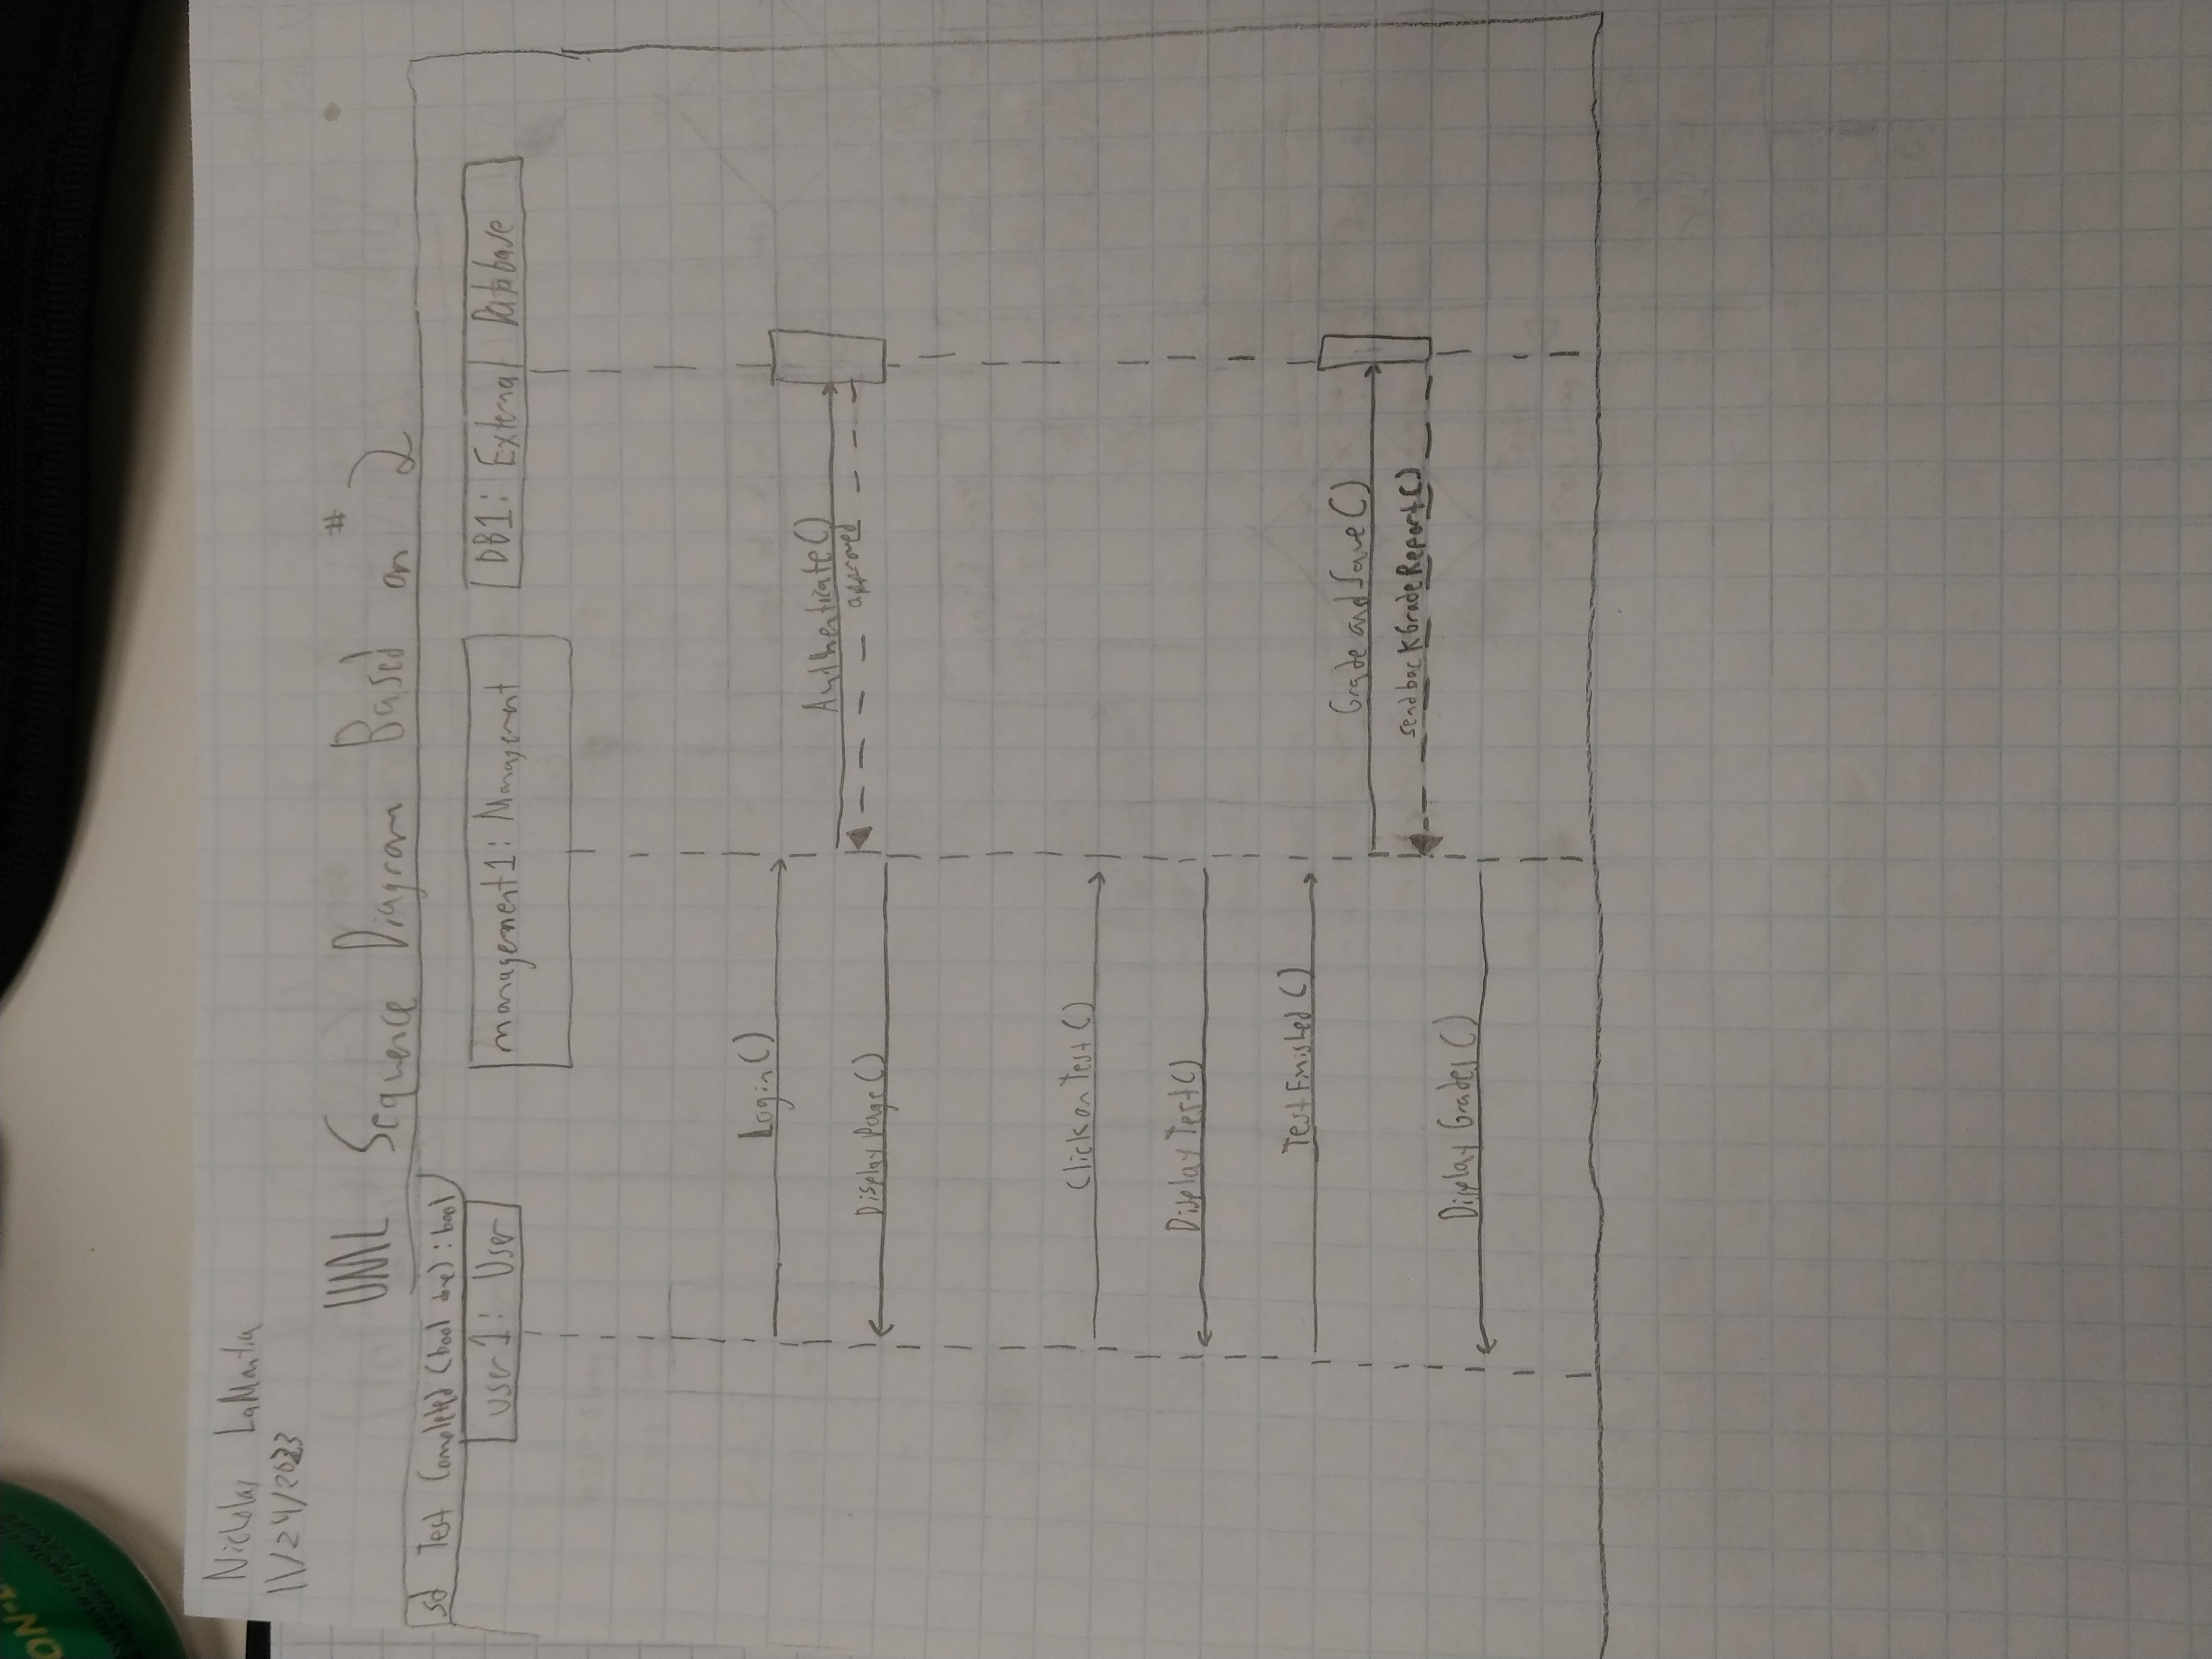 ON-L
SUGAR LEMON
NATURAL FLAVOR
Nicholas LaMantia
11/24/2023
UML Sequence Diagram Based on #2
sd Test Completed (bool done) : bool
user1: User
management1: Management
DB1: External Database
Login()
Authenticate()
approved
Display Page()
Click on Test()
Display Test()
Test Finished()
Grade and Save()
send back Grade Report()
Display Grades()